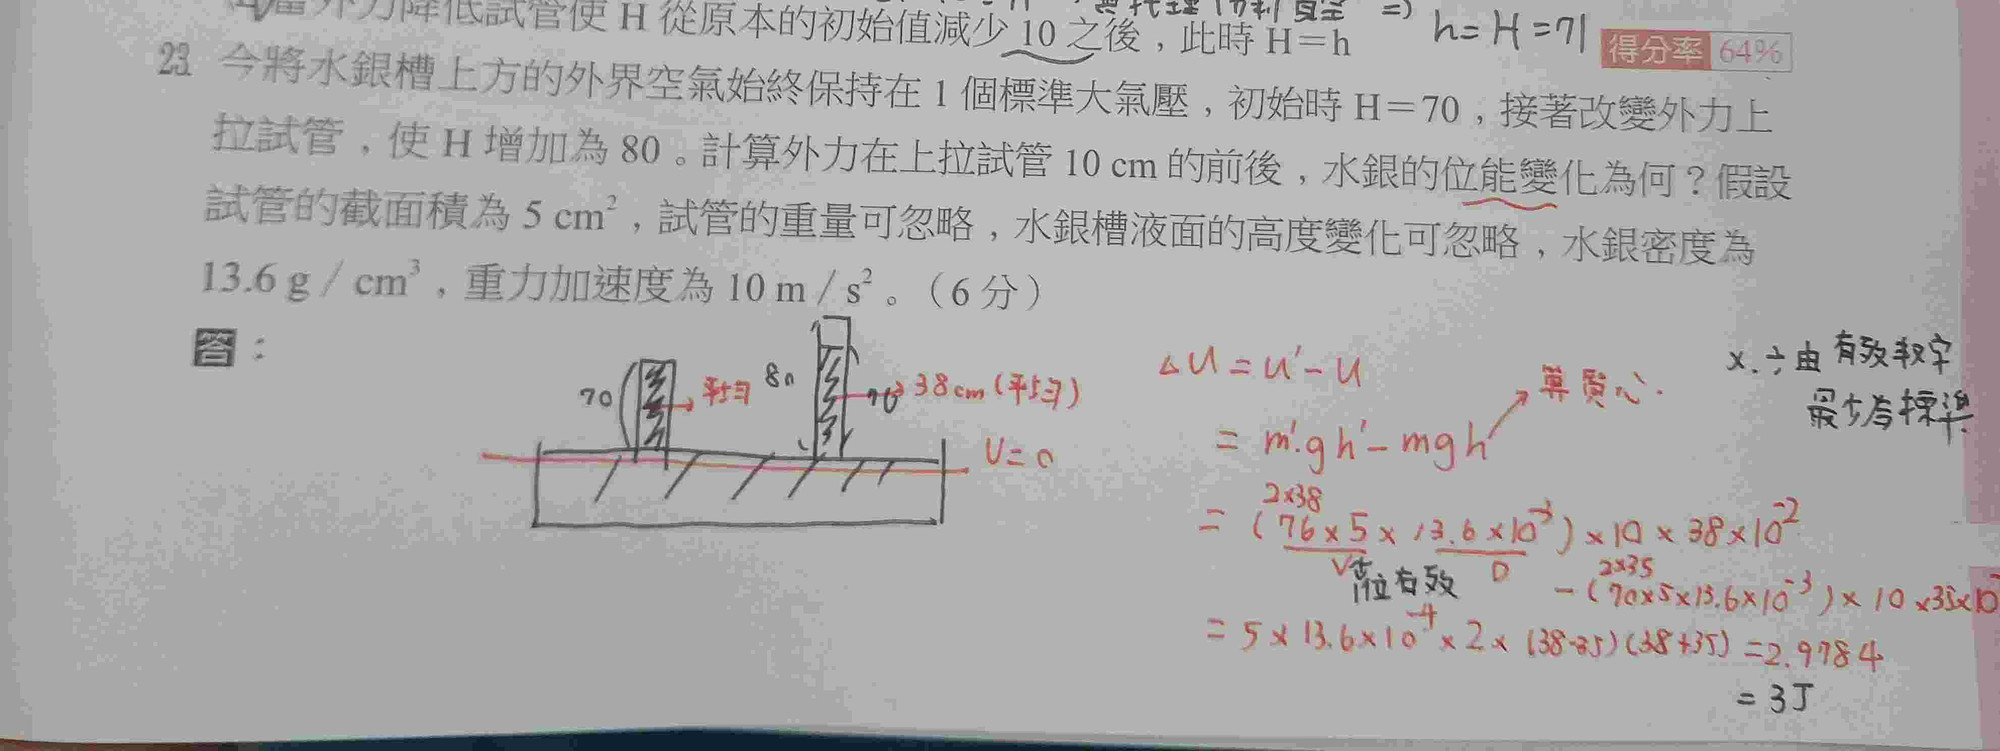 外力降低試管使 H 從原本的初始值減少 10 之後，此時 H＝h
h = H = 71
得分率 64%
23. 今將水銀槽上方的外界空氣始終保持在 1 個標準大氣壓，初始時 H＝70，接著改變外力上
拉試管，使 H 增加為 80。計算外力在上拉試管 10 cm 的前後，水銀的位能變化為何？假設
試管的截面積為 5 cm²，試管的重量可忽略，水銀槽液面的高度變化可忽略，水銀密度為
13.6 g / cm³，重力加速度為 10 m / s²。（6 分）
答：
70
平均
80
76
38cm (平均)
U=0
△U = U' - U
算質心.
= m'·gh' - mgh
x.÷由有效數字
最少為標準.
2×38
= (76×5×13.6×10⁻³)×10×38×10⁻²
V
D
位有效
2×35
-(70×5×13.6×10⁻³)×10×35×10⁻
= 5×13.6×10⁻⁴×2×(38-35)(38+35) = 2.9784
= 3J